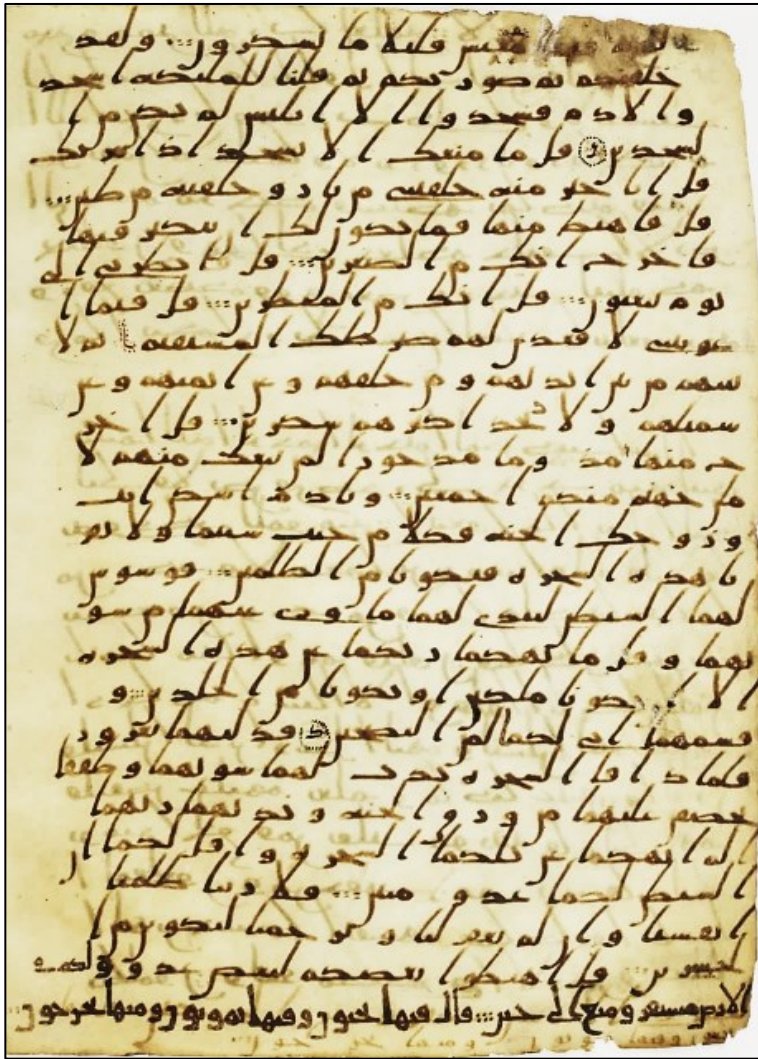 لكم فيها معيش قليلا ما تشكرون ولقد
خلقنكم ثم صورنكم ثم قلنا للملئكة اسجد
وا لادم فسجدوا الا ابليس لم يكن من ا
لسجدين قل ما منعك الا تسجد اذ امرتك
قل انا خير منه خلقتني من نار وخلقته من طين
قل فاهبط منها فما يكون لك ان تتكبر فيها
فاخرج انك من الصغرين قل انظرني الى
يوم يبعثون قل انك من المنظرين قل فبما ا
غويتني لاقعدن لهم صرطك المستقيم ثم لا
تينهم من بين ايديهم ومن خلفهم وعن ايمنهم وعن
شمئلهم ولا تجد اكثرهم شكرين قل اخر
ج منها مذوما مدحورا لمن تبعك منهم لا
ملن جهنم منكم اجمعين ويادم اسكن انت
وزوجك الجنة فكلا من حيث شئتما ولا تقر
با هذه الشجرة فتكونا من الظلمين فوسوس
لهما الشيطن ليبدي لهما ما وري عنهما من سو
تهما وقل ما نهكما ربكما عن هذه الشجرة
الا ان تكونا ملكين او تكونا من الخلدين و
قسمهما اني لكما لمن النصحين فدليهما بغرور
فلما ذاقا الشجرة بدت لهما سوتهما وطفقا
يخصفن عليهما من ورق الجنة وناديهما ربهما
الم انهكما عن تلكما الشجرة واقل لكما ان
الشيطن لكما عدو مبين قلا ربنا ظلمنا
انفسنا وان لم تغفر لنا وترحمنا لنكونن من ا
لخسرين قل اهبطوا بعضكم لبعض عدو ولكم في
الارض مستقر ومتع الى حين قال فيها تحيون وفيها تموتون ومنها تخرجون